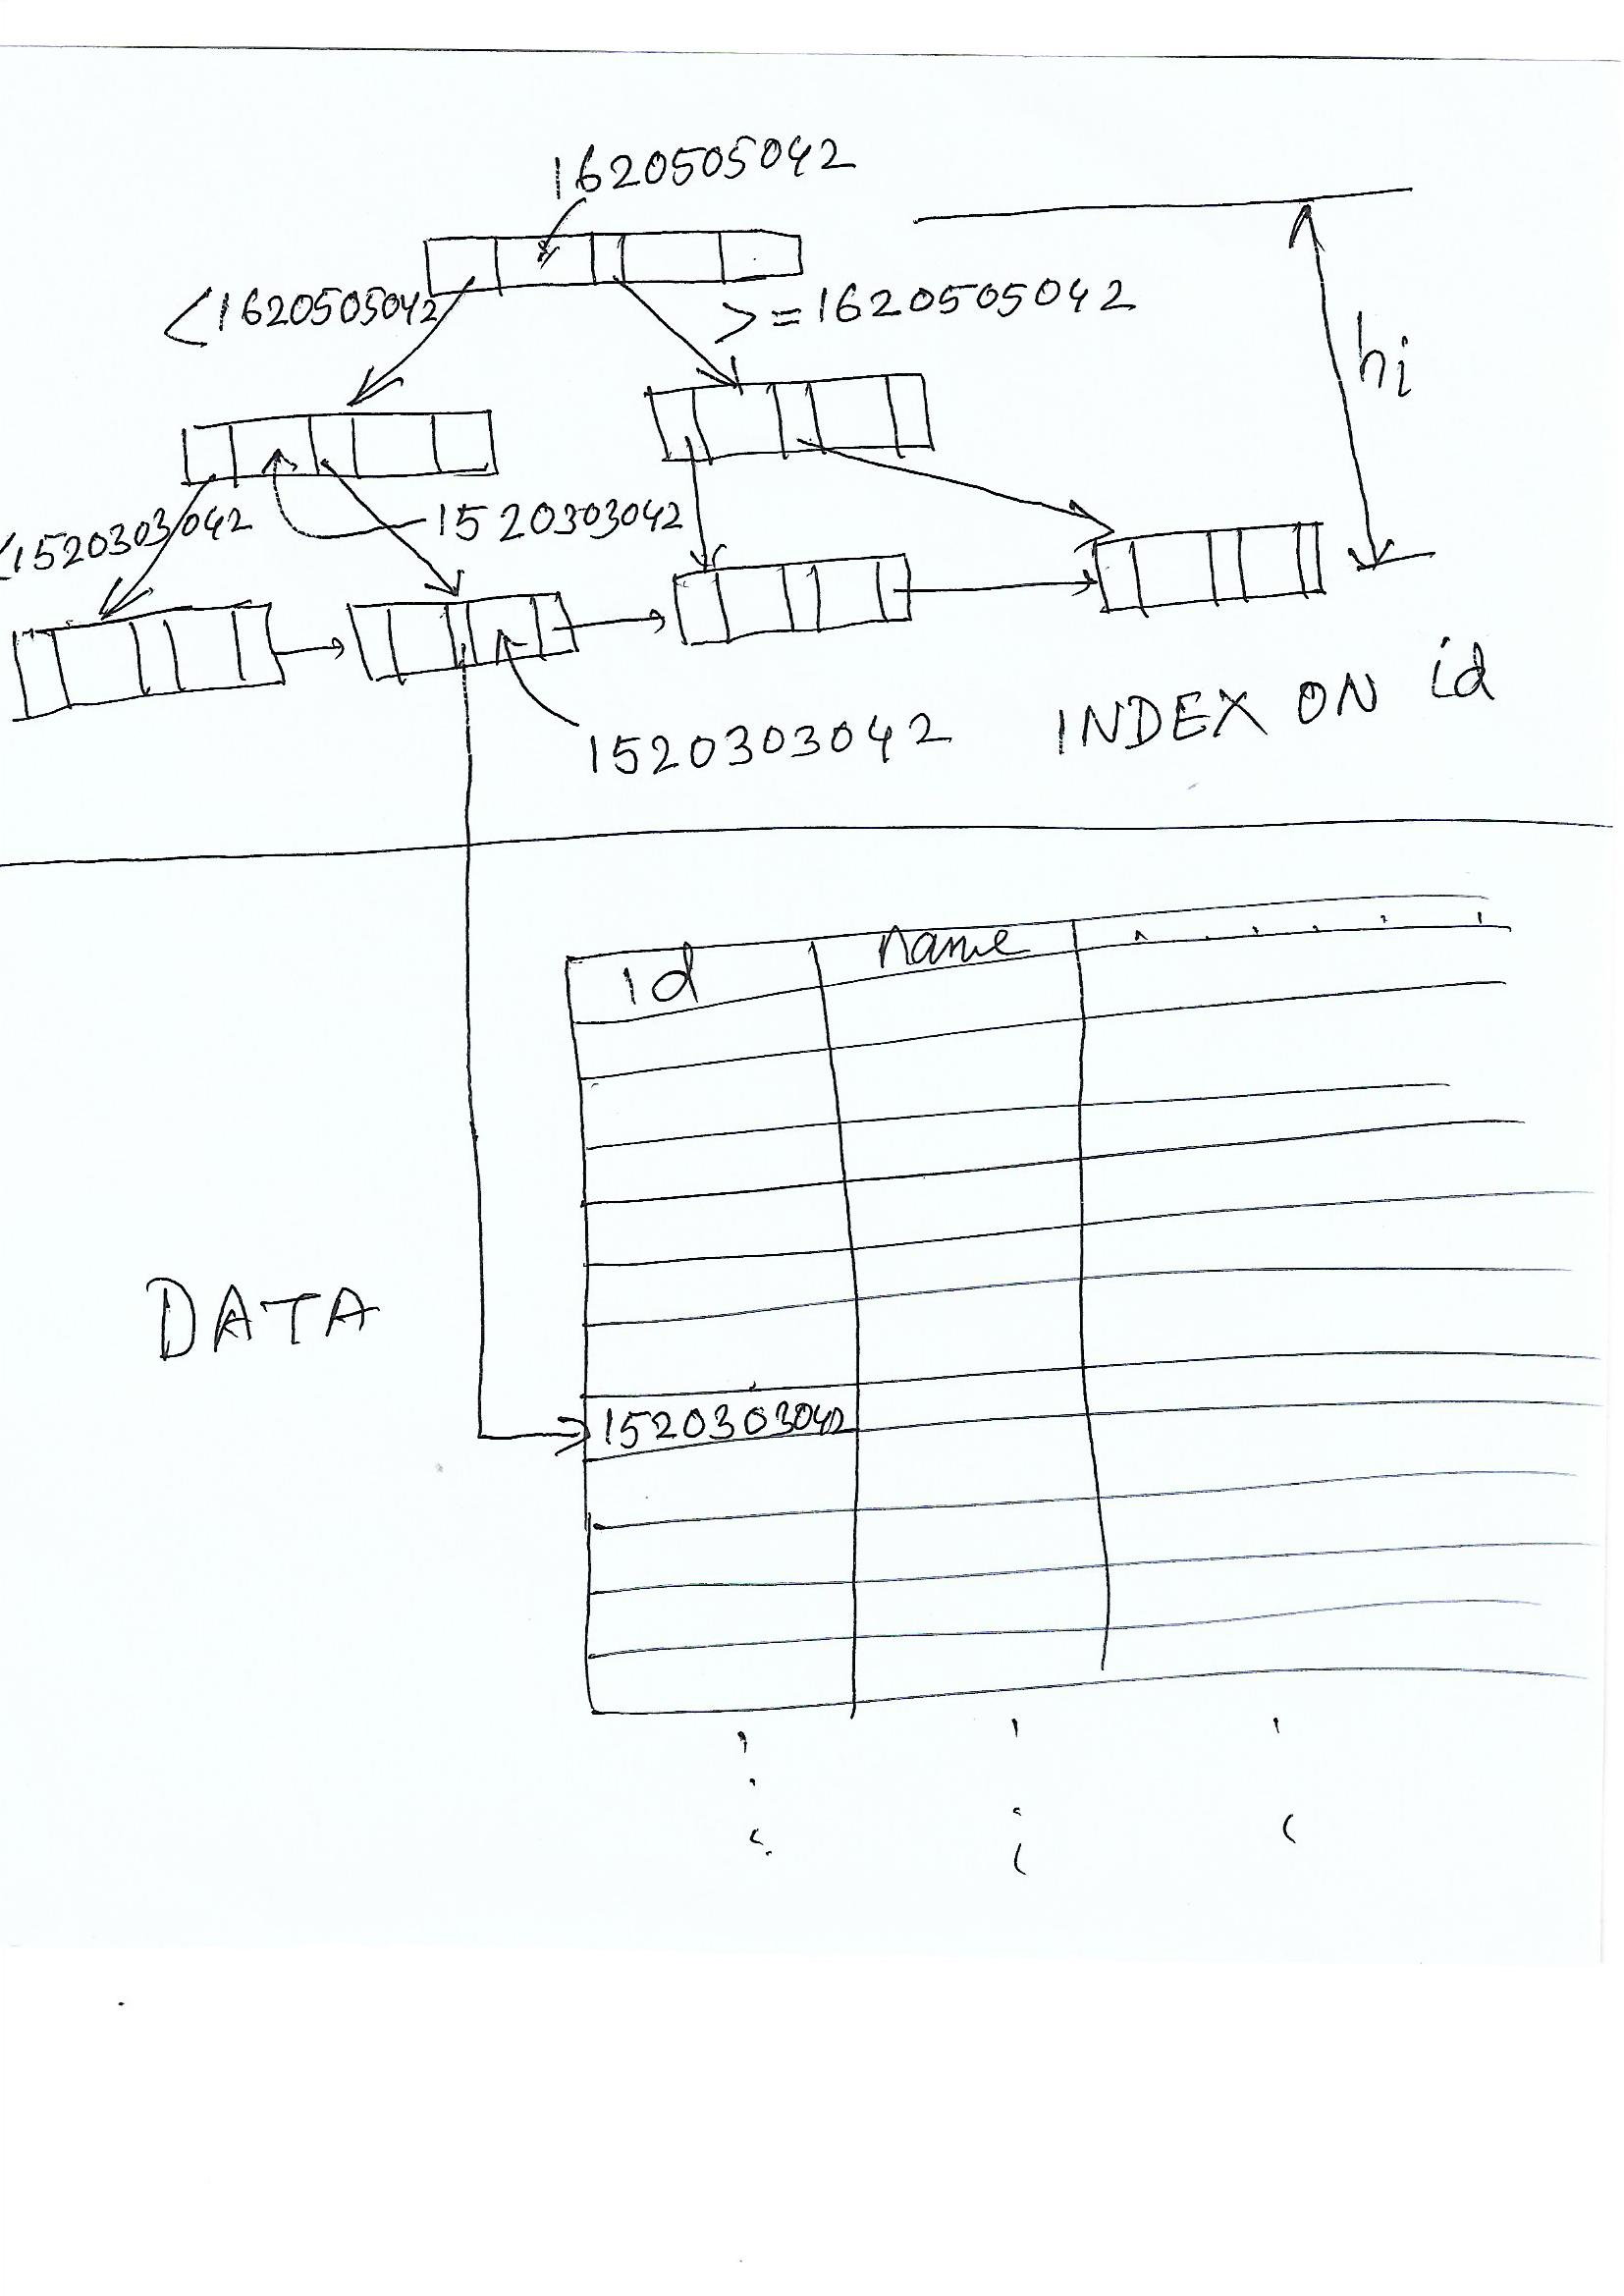 1620505042
<1620505042
>=1620505042
hi
<1520303042
1520303042
1520303042
INDEX ON id
id name . . . . . .
DATA
1520303042